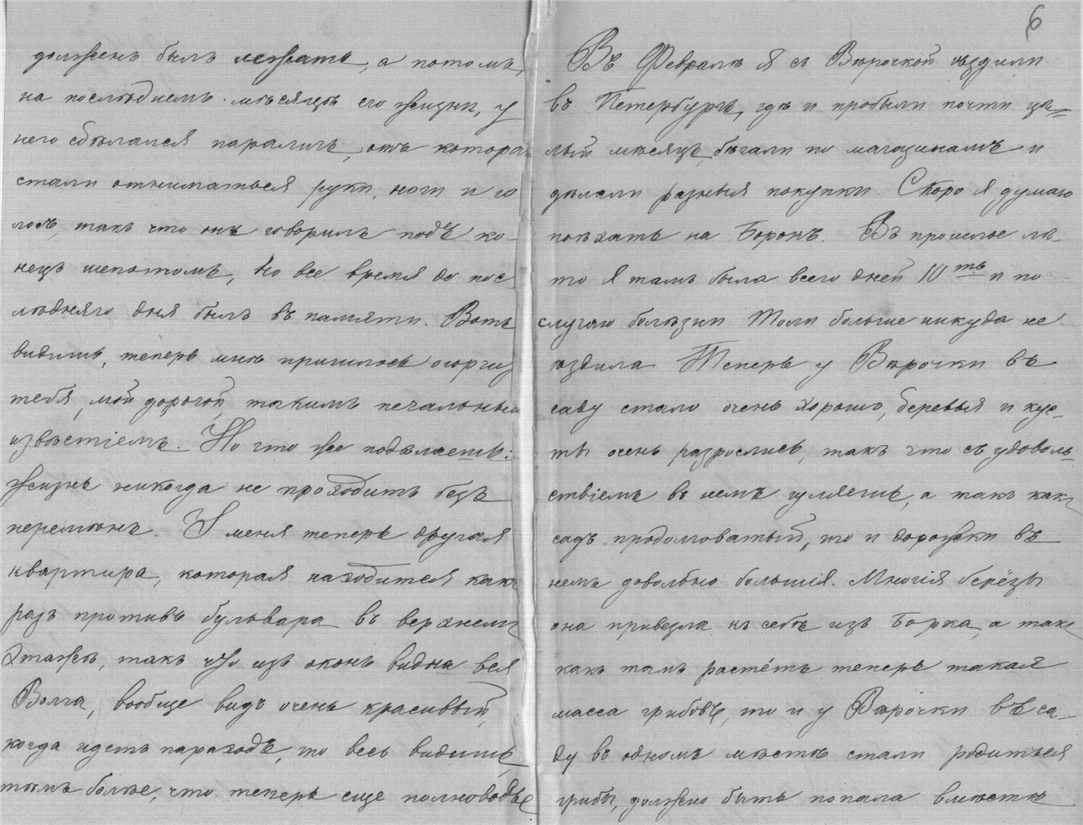 долженъ былъ лежать, а потомъ,
на послѣднемъ мѣсяцѣ его жизни, у
него сдѣлался параличъ, отъ котора
стали отниматься руки, ноги и го
лосъ, такъ что онъ говорилъ подъ ко-
нецъ шепотомъ, но все время до пос-
лѣдняго дня былъ въ памяти. Вотъ
видишь, теперь мнѣ пришлось огорчи
тебя, мой дорогой такимъ печальны
извѣстіемъ. Но что же подѣлаешь:
жизнь никогда не проходитъ безъ
перемѣнъ. У меня теперь другая
квартира, которая находится какъ
разъ противъ бульвара въ верхнемъ
этажѣ, такъ что изъ оконъ видна вся
Волга, вообще видъ очень красивый,
когда идетъ пароходъ, то весь видишь,
тѣмъ болѣе, что теперь еще полноводье
6
Въ Февралѣ я съ Вѣрочкой ѣздили
въ Петербургъ, гдѣ и пробыли почти цѣ=
лый мѣсяцъ бѣгали по магазинамъ и
дѣлали разныя покупки. Скоро я думаю
поѣхать на Борокъ. Въ прошлое лѣ-
то я тамъ была всего дней 10ть и по
случаю болѣзни Толи больше никуда не
ѣздила. Теперь у Вѣрочки въ
саду стало очень хорошо, деревья и кус-
ты очень разрослись, такъ что съ удоволь-
ствіемъ въ немъ гуляешь, а такъ какъ
садъ продолговатый, то и дорожки въ
немъ довольно большія. Многія берёзы
она привезла къ себѣ изъ Борка, а такъ
какъ тамъ растётъ теперь такая
масса грибовъ, то и у Вѣрочки въ са-
ду въ одномъ мѣстѣ стали родиться
грибы, должно быть попала вмѣстѣ